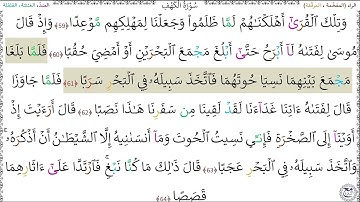 سُورَةُ الكَهْفِ
وَتِلْكَ ٱلْقُرَىٰٓ أَهْلَكْنَـٰهُمْ لَمَّا ظَلَمُوا۟ وَجَعَلْنَا لِمَهْلِكِهِم مَّوْعِدًا ﴿59﴾ وَإِذْ قَالَ
مُوسَىٰ لِفَتَىٰهُ لَآ أَبْرَحُ حَتَّىٰٓ أَبْلُغَ مَجْمَعَ ٱلْبَحْرَيْنِ أَوْ أَمْضِىَ حُقُبًا ﴿60﴾ فَلَمَّا بَلَغَا
مَجْمَعَ بَيْنِهِمَا نَسِيَا حُوتَهُمَا فَٱتَّخَذَ سَبِيلَهُۥ فِى ٱلْبَحْرِ سَرَبًا ﴿61﴾ فَلَمَّا جَاوَزَا
قَالَ لِفَتَىٰهُ ءَاتِنَا غَدَآءَنَا لَقَدْ لَقِينَا مِن سَفَرِنَا هَـٰذَا نَصَبًا ﴿62﴾ قَالَ أَرَءَيْتَ إِذْ
أَوَيْنَآ إِلَى ٱلصَّخْرَةِ فَإِنِّى نَسِيتُ ٱلْحُوتَ وَمَآ أَنسَىٰنِيهِ إِلَّا ٱلشَّيْطَـٰنُ أَنْ أَذْكُرَهُۥ ۚ
وَٱتَّخَذَ سَبِيلَهُۥ فِى ٱلْبَحْرِ عَجَبًا ﴿63﴾ قَالَ ذَٰلِكَ مَا كُنَّا نَبْغِ ۚ فَٱرْتَدَّا عَلَىٰٓ ءَاثَارِهِمَا
قَصَصًا ﴿64﴾